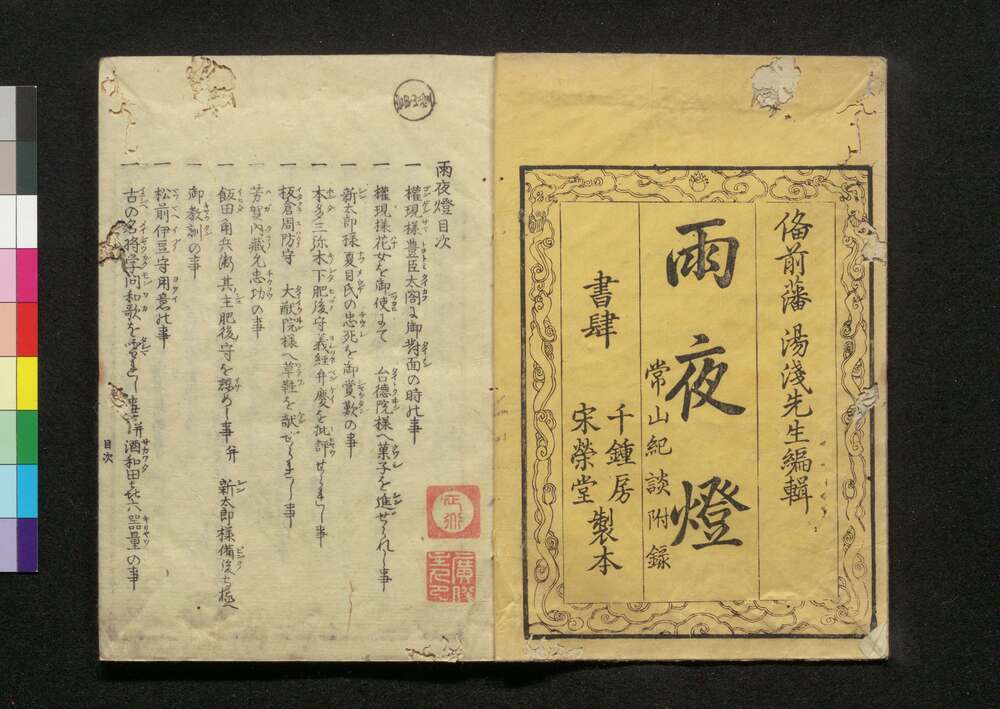 備前藩 湯淺先生編輯
雨夜燈
常山紀談附録
書肆
千鍾房
宋榮堂
製本
雨夜燈目次
一 權現様豊臣太閤と御對面の時の事
一 權現様花女を御使にて 台徳院様へ菓子を進ぜられし事
一 新太郎様夏目氏の忠死を御賞歎の事
一 本多三弥木下肥後守義経弁慶を批評せられし事
一 板倉周防守 大猷院様へ草鞋を献ぜられし事
一 芳賀内藏允忠功の事
一 飯田角兵衛其主肥後守を諫めし事 并 新太郎様備後
一 御教訓の事
一 松前伊豆守用意の事
一 古の名将学問和歌を
事 并 酒和田喜六器量の事
目次